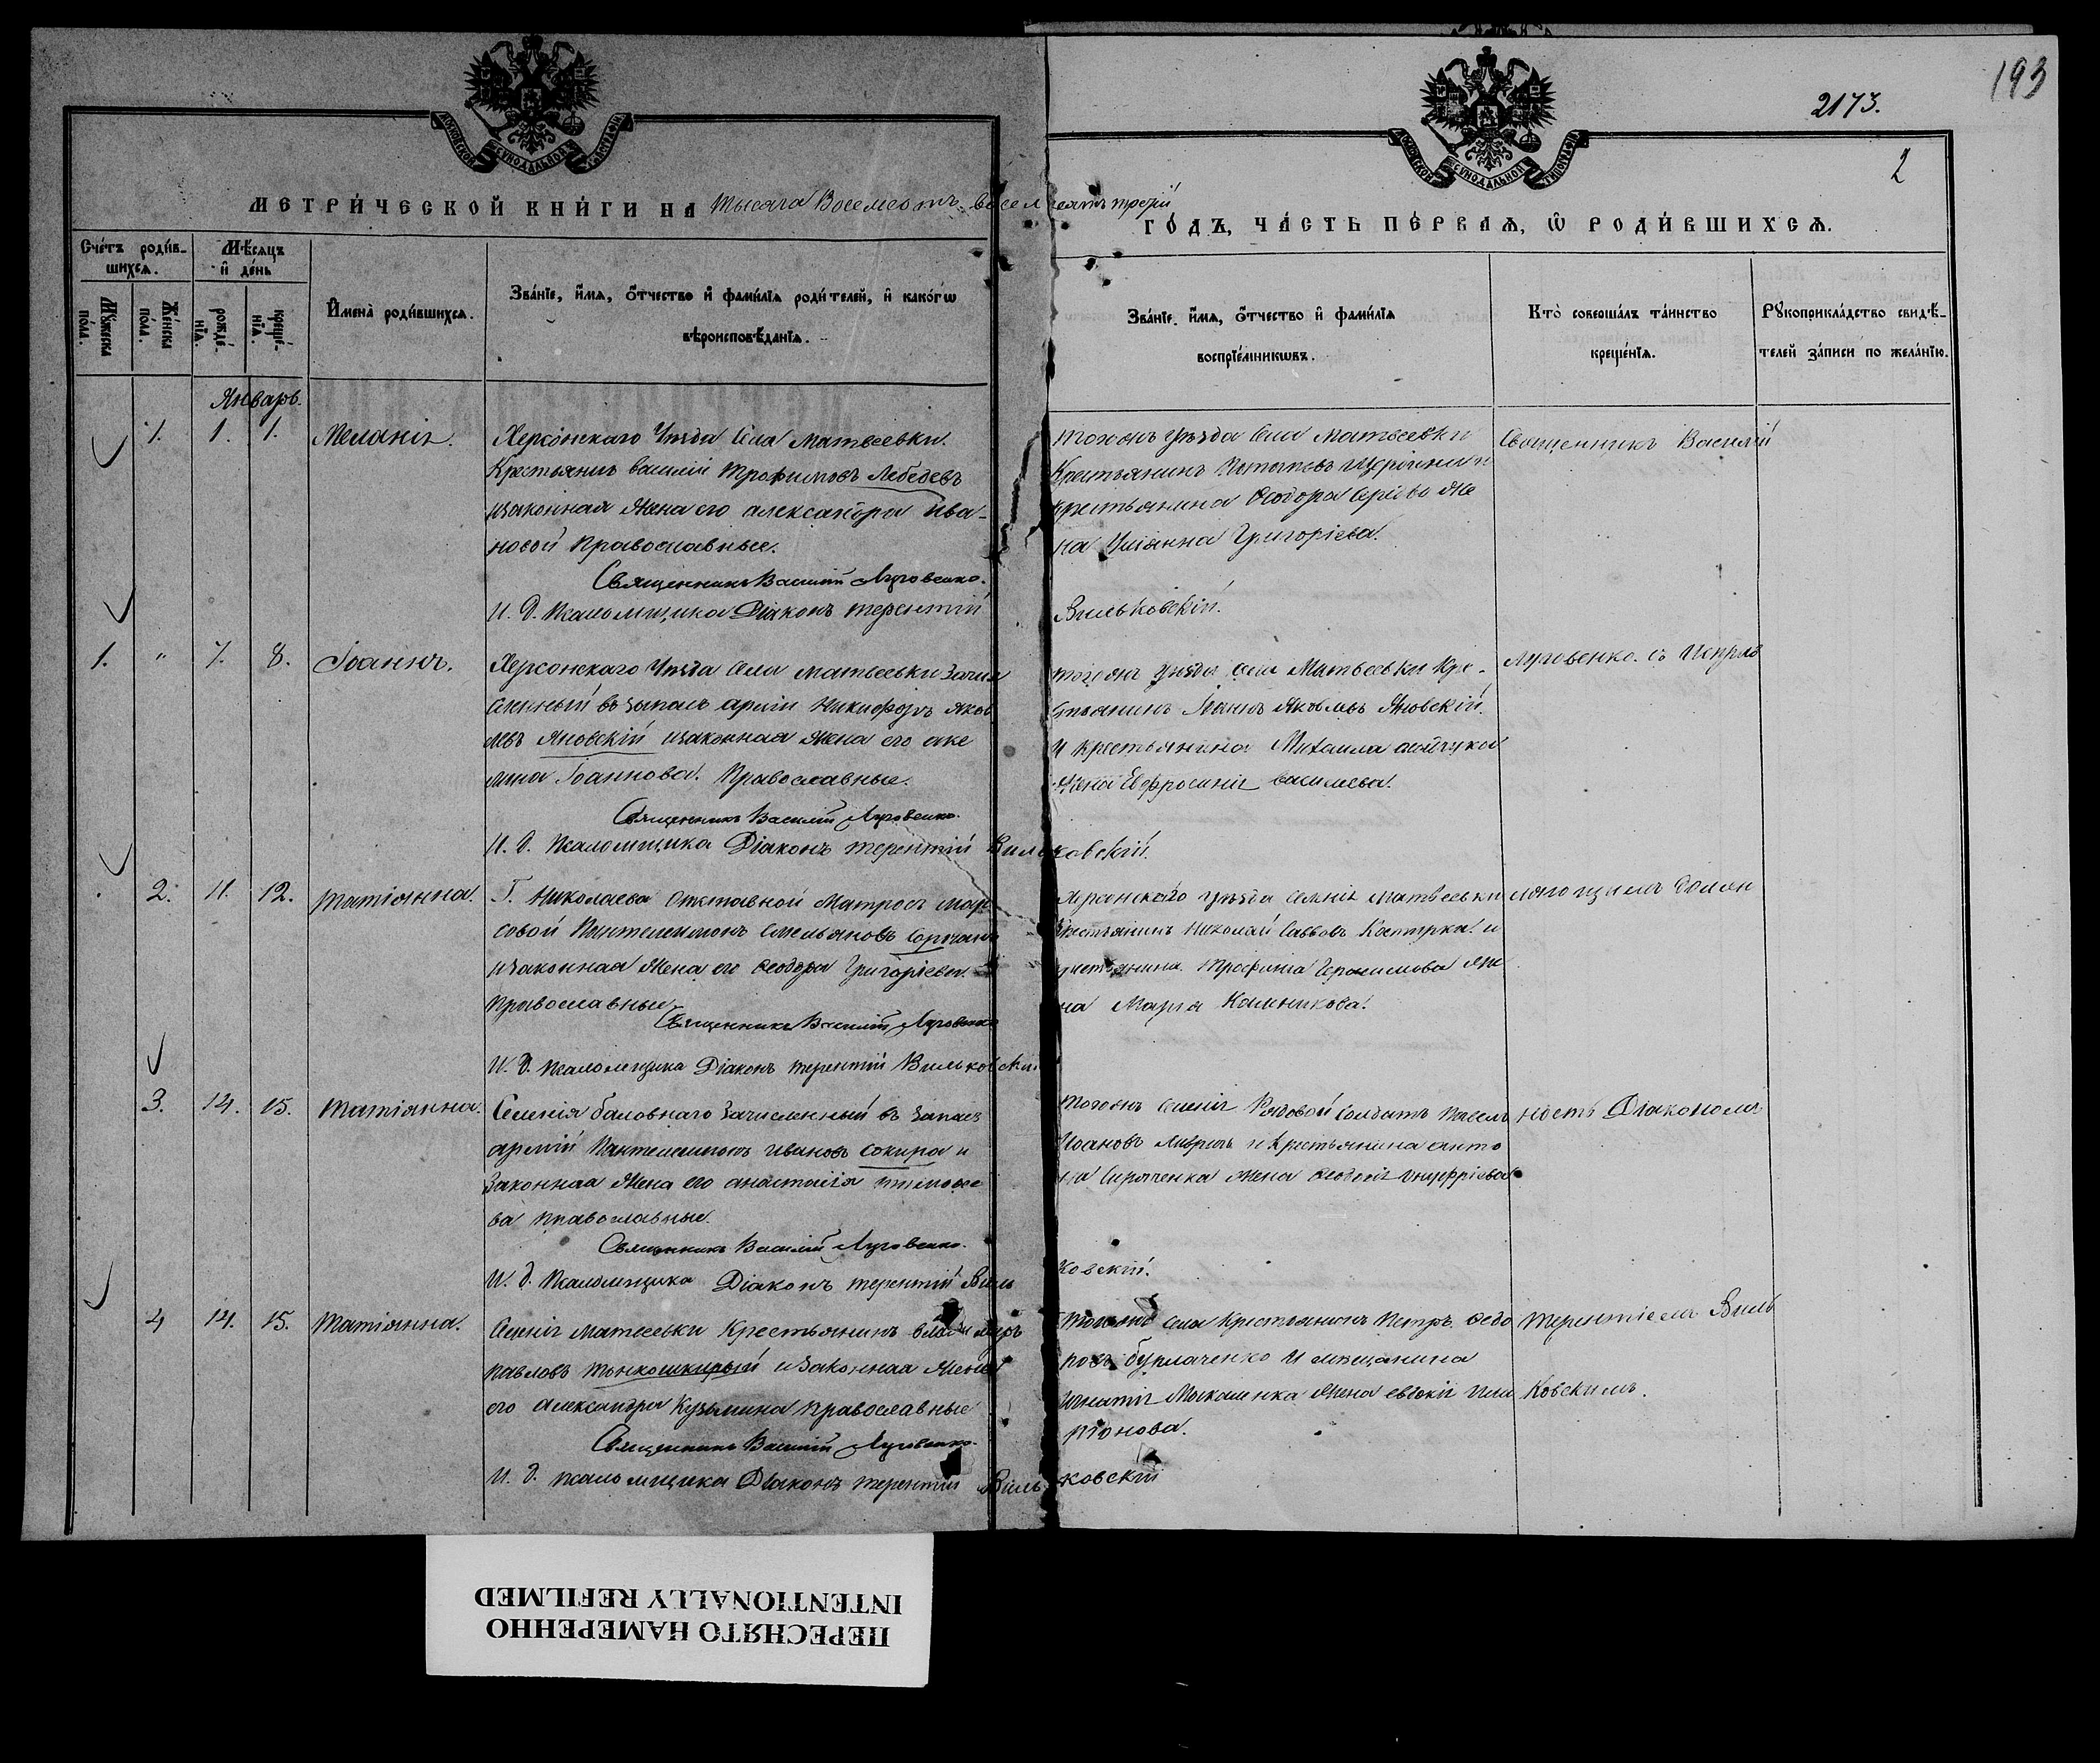 193
2173.
2
МОСКОВСКОЙ СѴНОДАЛЬНОЙ ТИПОГРАФІИ
МОСКОВСКОЙ СѴНОДАЛЬНОЙ ТИПОГРАФІИ
МЕТРИ́ЧЕСКОЙ КНИ́ГИ НА Тысяча Восемсотъ восемдесятъ третій
ГО́ДЪ, ЧА́СТЬ ПЕ́РВАѦ, Ѿ РОДИ́ВШИХСѦ.
Сче́тъ роди́в-
шихсѧ.
Мѣ́сѧцъ
и҆ де́нь
Мꙋ́жеска
по́ла.
Же́нска
по́ла.
рожде́-
нїѧ.
креще́-
нїѧ.
И҆мена̀ роди́вшихсѧ.
Зва́нїе, и҆́мѧ, ѻ҆́тчество и҆ фами́лїѧ роди́телей, и҆ како́гѡ
вѣроисповѣ́данїѧ.
Зва́нїе, и҆́мѧ, ѻ҆́тчество и҆ фами́лїѧ
воспрїе́мникѡвъ.
Кто̀ соверша́лъ та́инство
креще́нїѧ.
Рꙋкоприкла́дство свидѣ́-
телей за́писи по жела́нїю.
Январь.
1. 1. 1. Меланія.
Херсонскаго Уѣзда Села Матвеевки
Крестьянинъ Василій Трофимовъ Лебедевъ
изаконная Жена его александра ива-
новой Православные.
Священникъ Василій Луговенко.
И. д. Псаломщика Діаконъ терентій
тогожъ уѣзда Села Матвеевки
Крестьянинъ
крестьянина Ѳеодора Же
на Уліанна Григоріева.
Вильковскій.
Священникъ Василій
1. " 7. 8. Іоаннъ.
Херсонскаго Уѣзда Села Матвеевки Зачи
сленный въ запасъ арміи Никифоръ Яков
левъ Яновскій изаконная жена его аке
лина Іоаннова. Православные.
Священникъ Василій Луговенко.
И. д. Псаломщика Діаконъ терентій Вильковскій.
тогожъ уѣзда села Матвеевки Кре-
стьянинъ Іоаннъ Яковлевъ Яновскій.
и крестьянина Михаила
Жена Евфросинія василиева.
Луговенко. съ
2. 11. 12. татіанна.
Г. Николаева Отставной Матросъ Мар
совой Пантелеимонъ Емельяновъ
изаконная жена его Ѳеодора Григоріева.
Православные
Священникъ Василій Луговенко
И. д. Псаломщика Діаконъ терентій Вильковскій
Херсонскаго уѣзда селенія Матвеевки
Крестьянинъ Николай Саввовъ и
крестьянина Трофима Герасимова же
на Марія
ляющимъ должн
3. 14. 15. татіанна.
Селенія баловнаго Зачисленный въ Запасъ
арміи Пантелеимонъ ивановъ Сокира и
Законная Жена его анастасія
ва православные.
Священникъ Василій Луговенко.
И. д. Псаломщика Діаконъ терентій Виль
тогожъ селенія Рядовой Солдатъ Павелъ
Іоановъ и Крестьянина анто
на Жена Ѳеодосія Онуфріева
ковскій.
ность Діакономъ
4 14. 15. татіанна.
Селенія Матвеевки Крестьянинъ владимиръ
Павловъ Тонкошкурый изаконная Жена
его Александра Кузьмина православные
Священникъ Василій Луговенко.
И. д. псаломщика Діаконъ терентій Виль
тогожъ села Крестьянинъ Петръ Ѳедо
ровъ бурлаченко И мѣщанина
Игнатія Жена евдокія
ріонова.
ковскій
терентіемъ Виль
ковскимъ.
ПЕРЕСНЯТО НАМЕРЕННО
INTENTIONALLY REFILMED